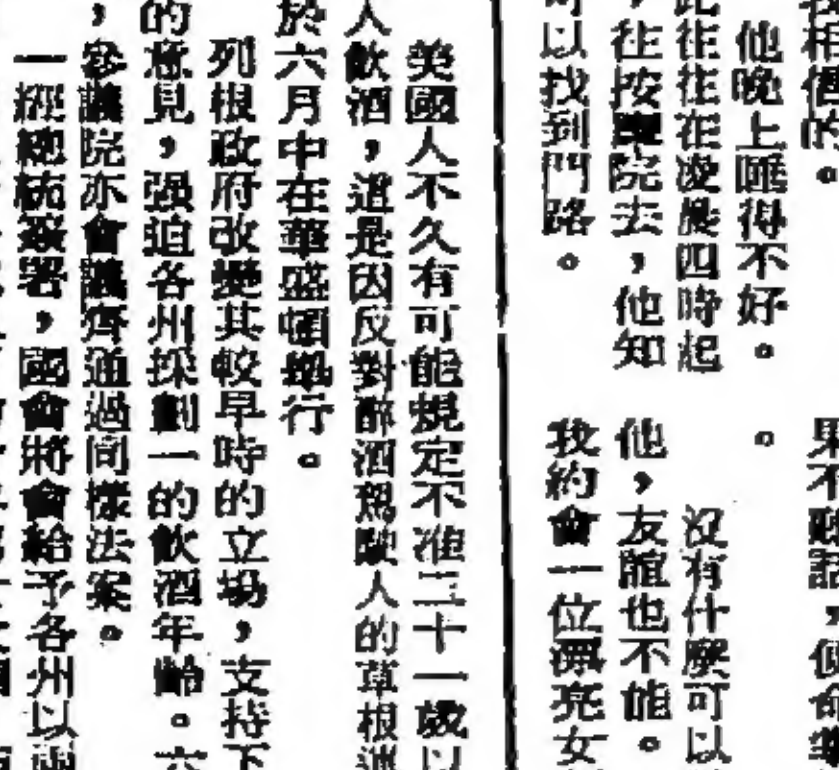 相信的。
他晚上睡得不好。
此往往在凌晨四時起
，往按醫院去，他知
可以找到門路。
果不聽話，便命
。
沒有什麼可以
他，友誼也不能。
我約會一位漂亮女
美國人不久有可能規定不准二十一歲以
人飲酒，這是因反對醉酒駕駛人的草根運
於六月中在華盛頓舉行。
列根政府改變其較早時的立場，支持下
的意見，强迫各州採劃一的飲酒年齡。六
，參議院亦會議齊通過同樣法案。
一經總統簽署，國會將會給予各州以兩